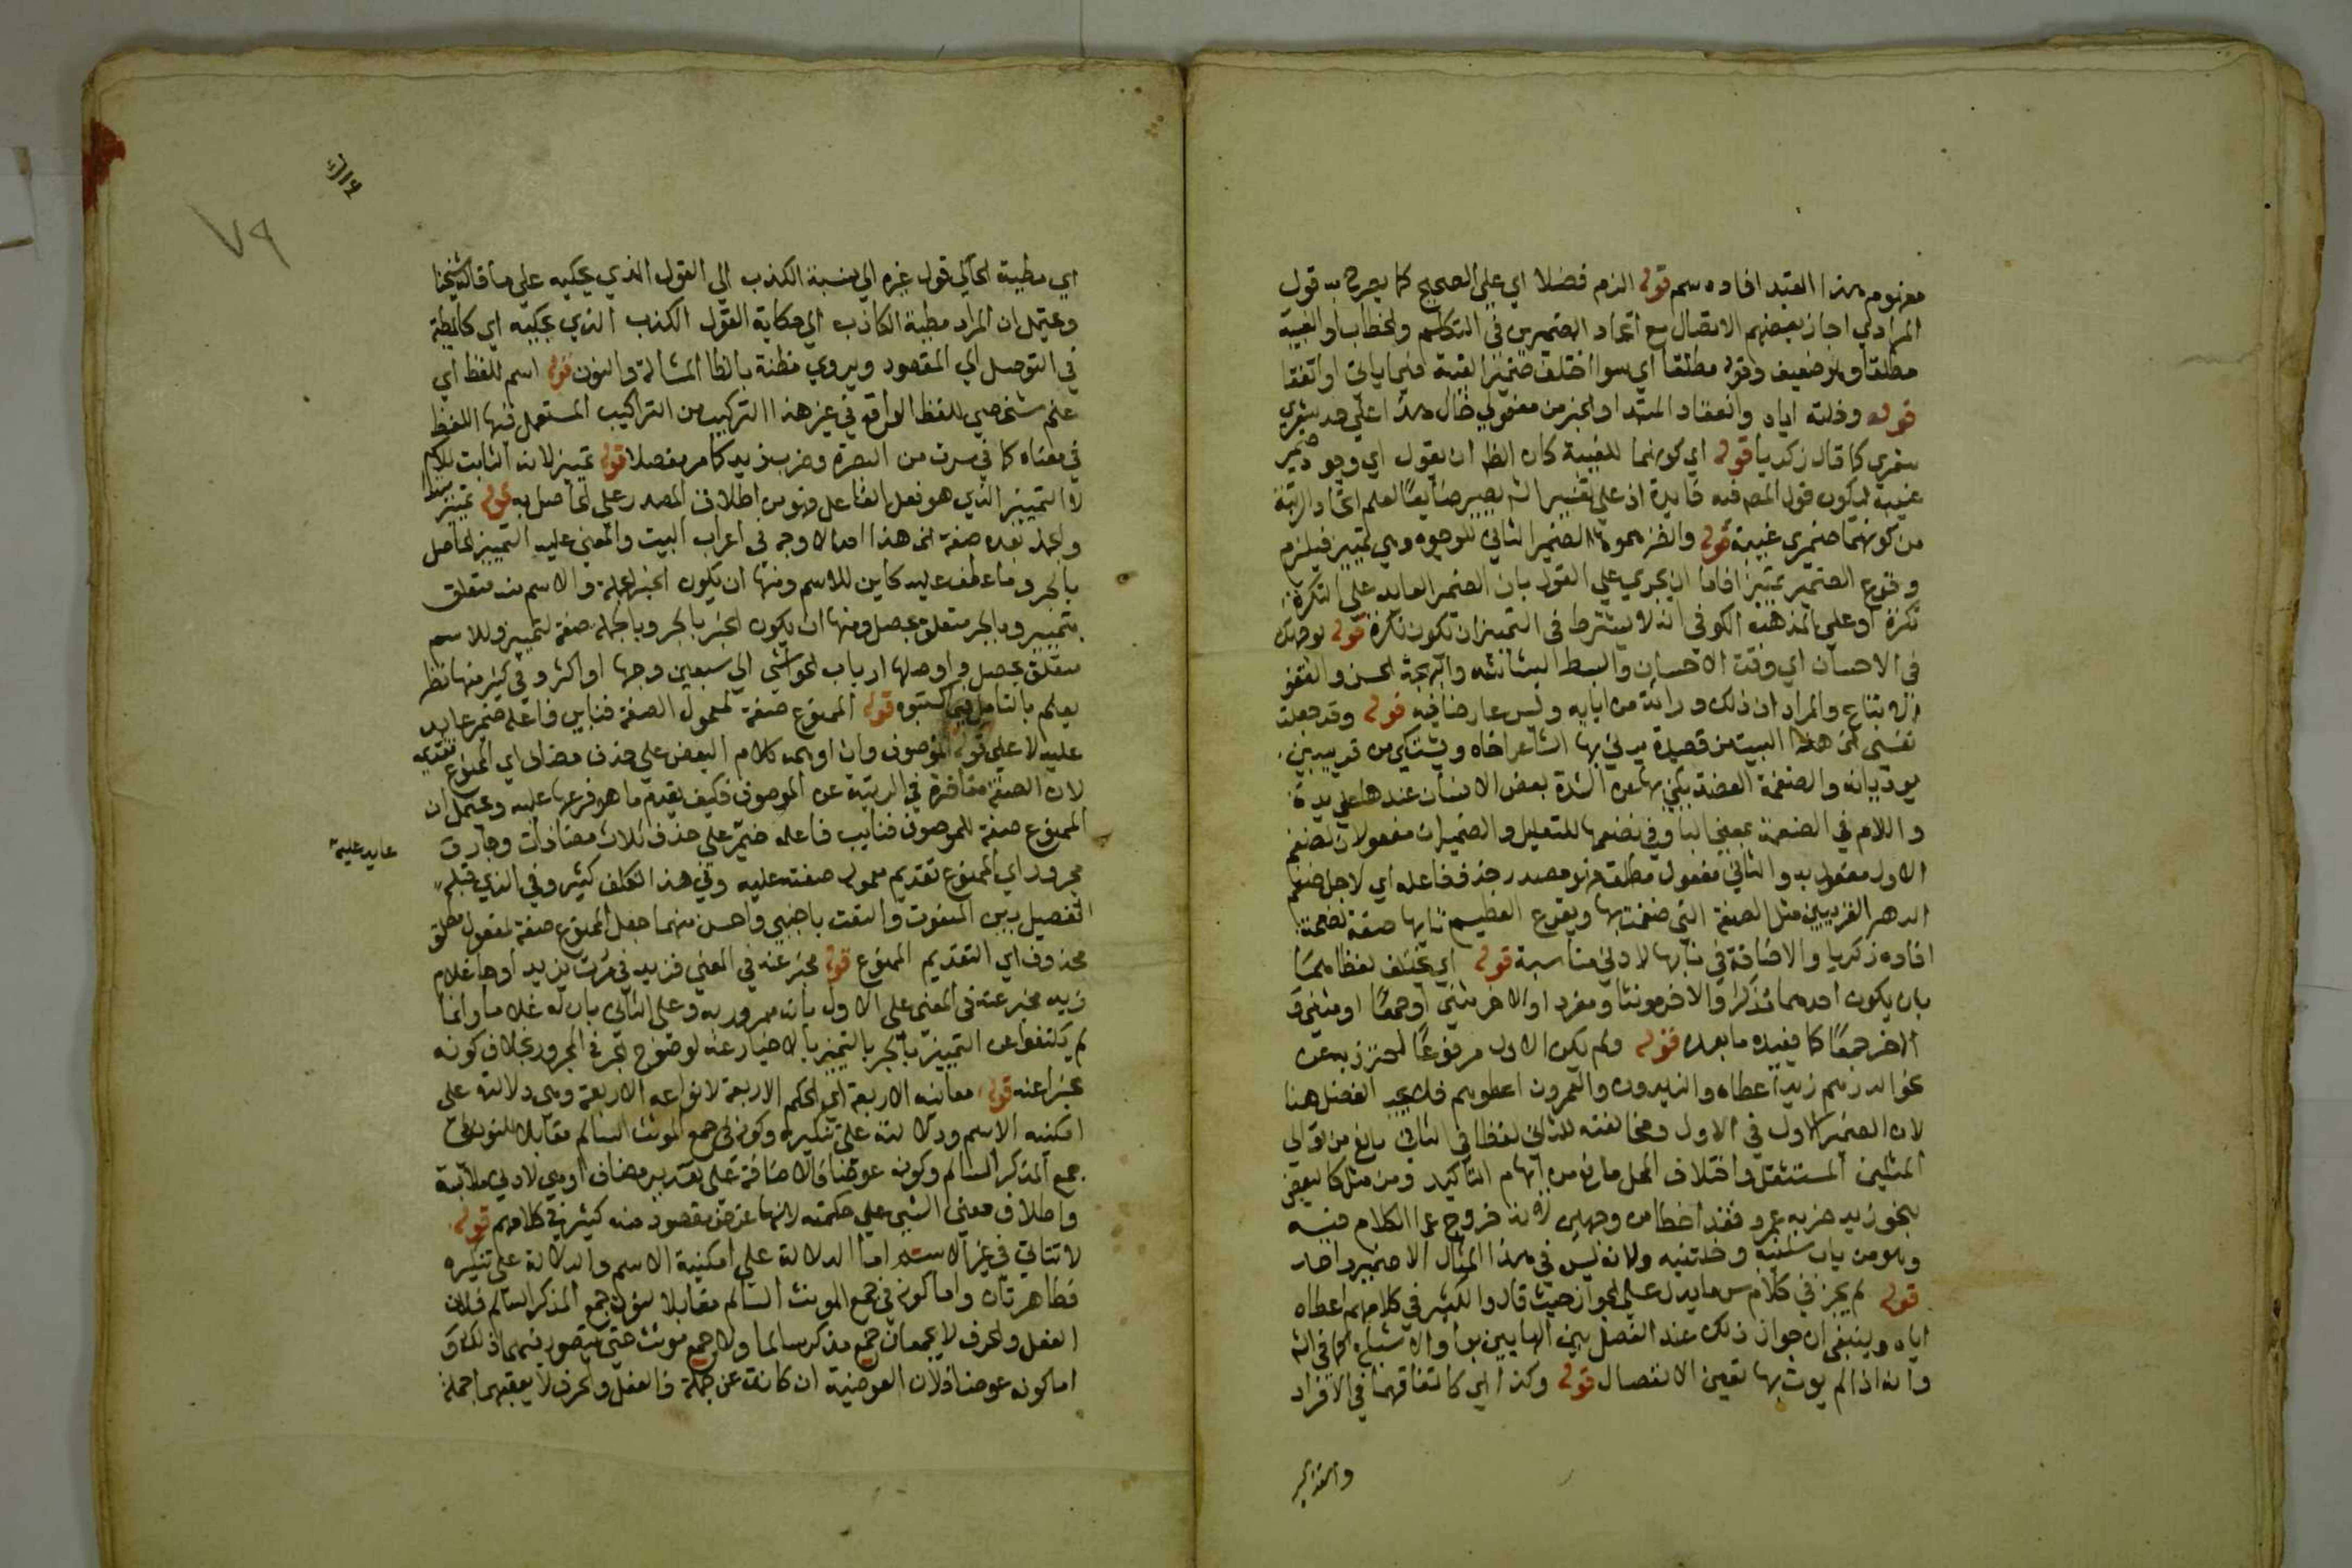 مفهوم هذا القيد افاده سم قوله الزم فضلا اي على الصحيح كما يصرح به قول
المرادي اجاز بعضهم الاتصال مع اتحاد الضميرين في التكلم والخطاب او الغيبة
مطلقا وهو ضعيف وقوله مطلقا اي سوا اختلف ضميرا الغيبة فيما ياتي او اتفقا
قوله وخلته اياه وانعقاد المبتدا والخبر من مفعولي خال هذا على حد شعري
شعري كما قال زكريا قوله اي كونهما للغيبة كان الظ ان يقول اي وجود ضمير
غيبة ليكون قول المص فيه فايدة اذ على تفسير الش يصير ضايعا لعلم اتحاد الرتبة
من كونهما ضميري غيبة قوله والضميرها الضمير الثاني للوجوه وهي تمييز فيلزم
وقوع الضمير تمييزا فاما ان يجري على القول بان الضمير العايد على النكرة
نكرة او على مذهب الكوفي انه لا يشترط في التمييز ان تكون نكرة قوله لوجهك
في الاحسان اي وقت الاحسان والبسط البشاشة والبهجة الحسن والقفو
الاتباع والمراد ان ذلك وراثة من ابايه وليس عارضا فيه قوله وقد جعلت
نفسي الخ هذا البيت من قصيدة يرثي بها الشاعر اخاه ويشتكي من قريبين
يوذيانه والضغمة العضة يكني بها عن الشدة بعض الانسان عندها على يده
واللام في لضغمة بمعنى البا وفي لضغمهما للتعليل والضميران مفعولان لضغم
الاول مفعول به والثاني مفعول مطلق فهو مصدر حذف فاعله اي لاجل ضغم
الدهر القريبين مثل الضغمة التي ضغمت بها ويقرع العظيم نابها صفة لضغمة
افاده زكريا والاضافة في نابها لادنى مناسبة قوله اي يختلف لفظاهما
بان يكون احدهما مذكرا والاخر مونثا او مفرد او الاخر مثنى او جمعا او مثنى و
الاخر جمعا كما يفيده ما بعده قوله ولم يكن الاول مرفوعا احترز به عن
نحو الدرهم زيدا اعطاه والزيدون والعمرون اعطوهم فلا يجب الفصل هنا
لان الضمير الاول في الاول ومخالفته للثاني لفظا في الثاني مانع من توالي
المثلين المستثقل واختلاف المحل مانع من ايهام التاكيد ومن مثل كالبعض
بنحو زيد ضربه عمرو فقد اخطا من وجهين لانه خروج عما الكلام فيه
وهو من باب سلنيه وخلتنيه ولانه ليس في هذا المثال الا ضمير واحد
قوله لم يجز في كلام س ما يدل على الجواز حيث قال والكثير في كلامهم اعطاه
اياه وينبغي ان جواز ذلك عند الفصل بين الهايين بواو الاشباع كما في الش
وانه اذا لم يوت بها تعين الانفصال قوله وكذا اي كاتفاقهما في الافراد
والتذكير
٧٩
اي مطية الحاكي قول غيره الى نسبة الكذب الى القول الذي يحكيه على ما قاله شيخنا
ويحتمل ان المراد مطية الكاذب الى حكاية القول الكذب الذي يحكيه اي كالمطية
في التوصل الى المقصود ويروي مظنة بالظا المشالة والنون قوله اسم للفظ اي
علم شخصي للفظ الواقع في غير هذا التركيب من التراكيب المستعمل فيها اللفظ
في معناه كما في سرت من البصرة وضرب زيد كما مر مفصلا قوله تمييز لانه الثابت للاسم
لا التمييز الذي هو فعل الفاعل فهو من اطلاق المصدر على الحاصل به قوله تمييز مبتدا
والجملة بعده صفة الخ هذا احد الاوجه في اعراب البيت والمعنى عليه التمييز الحاصل
بالجر وما عطف عليه كاين للاسم ومنها ان يكون الخبر الجملة والاسم متعلق
بتمييز وبالجر متعلق بحصل ومنها ان يكون الخبر بالجر وبالجملة صفة لتمييز وللاسم
متعلق بحصل واوصلها ارباب الحواشي الى سبعين وجها او اكثر وفي كثير منها نظر
يعلم بالتامل فيما كتبوه قوله الممنوع صفة لمعمول الصفة فنايب فاعله ضمير عايد
عليه لا على قوله الموصوف وان اوهمه كلام البعض على حذف مضاف اي الممنوع تقديمه
لان الصفة متاخرة في الرتبة عن الموصوف فكيف يقدم ما هو فرعها عليه ويحتمل ان
الممنوع صفة للموصوف فنايب فاعله ضمير على حذف ثلاث مضافات وجار و
عايد عليه
مجرور اي الممنوع تقديم معمول صفته عليه وفي هذا تكلف كثير وفي الذي قبله
الفصل بين المنعوت والنعت باجنبي واحسن منهما جعل الممنوع صفة لمفعول مطلق
محذوف اي التقديم الممنوع قوله مخبر عنه في المعنى فزيد في مررت بزيد اوجا غلام
زيد مخبر عنه في المعنى على الاول بانه ممرور به وعلى الثاني بان له غلاما وانما
لم يكتفوا عن التمييز بالجر بالتمييز بالاخبار عنه لوضوح الجر في المجرور بخلاف كونه
مخبرا عنه قوله معانيه الاربعة اي الحكم الاربعة لانواعه الاربعة وهي دلالته على
امكنية الاسم ودلالته على تنكيره وكونه في جمع المونث السالم مقابلا للنون في
جمع المذكر السالم وكونه عوضا فالاضافة على تقدير مضاف او هي لادنى ملابسة
واطلاق معنى الشي على حكمته لانها غرض مقصود منه كثير في كلامهم قوله
لا تتاتى في غير الاسم اما الدلالة على امكنية الاسم والدلالة على تنكيره
فظاهرتان واما كونه في جمع المونث السالم مقابلا لنون جمع المذكر السالم فلان
الفعل والحرف لا يجمعان جمع مذكر سالما ولا جمع مونث حتى يتصور فيهما ذلك و
اما كونه عوضا فلان العوضية ان كانت عن جملة فالفعل والحرف لا يعقبهما جملة